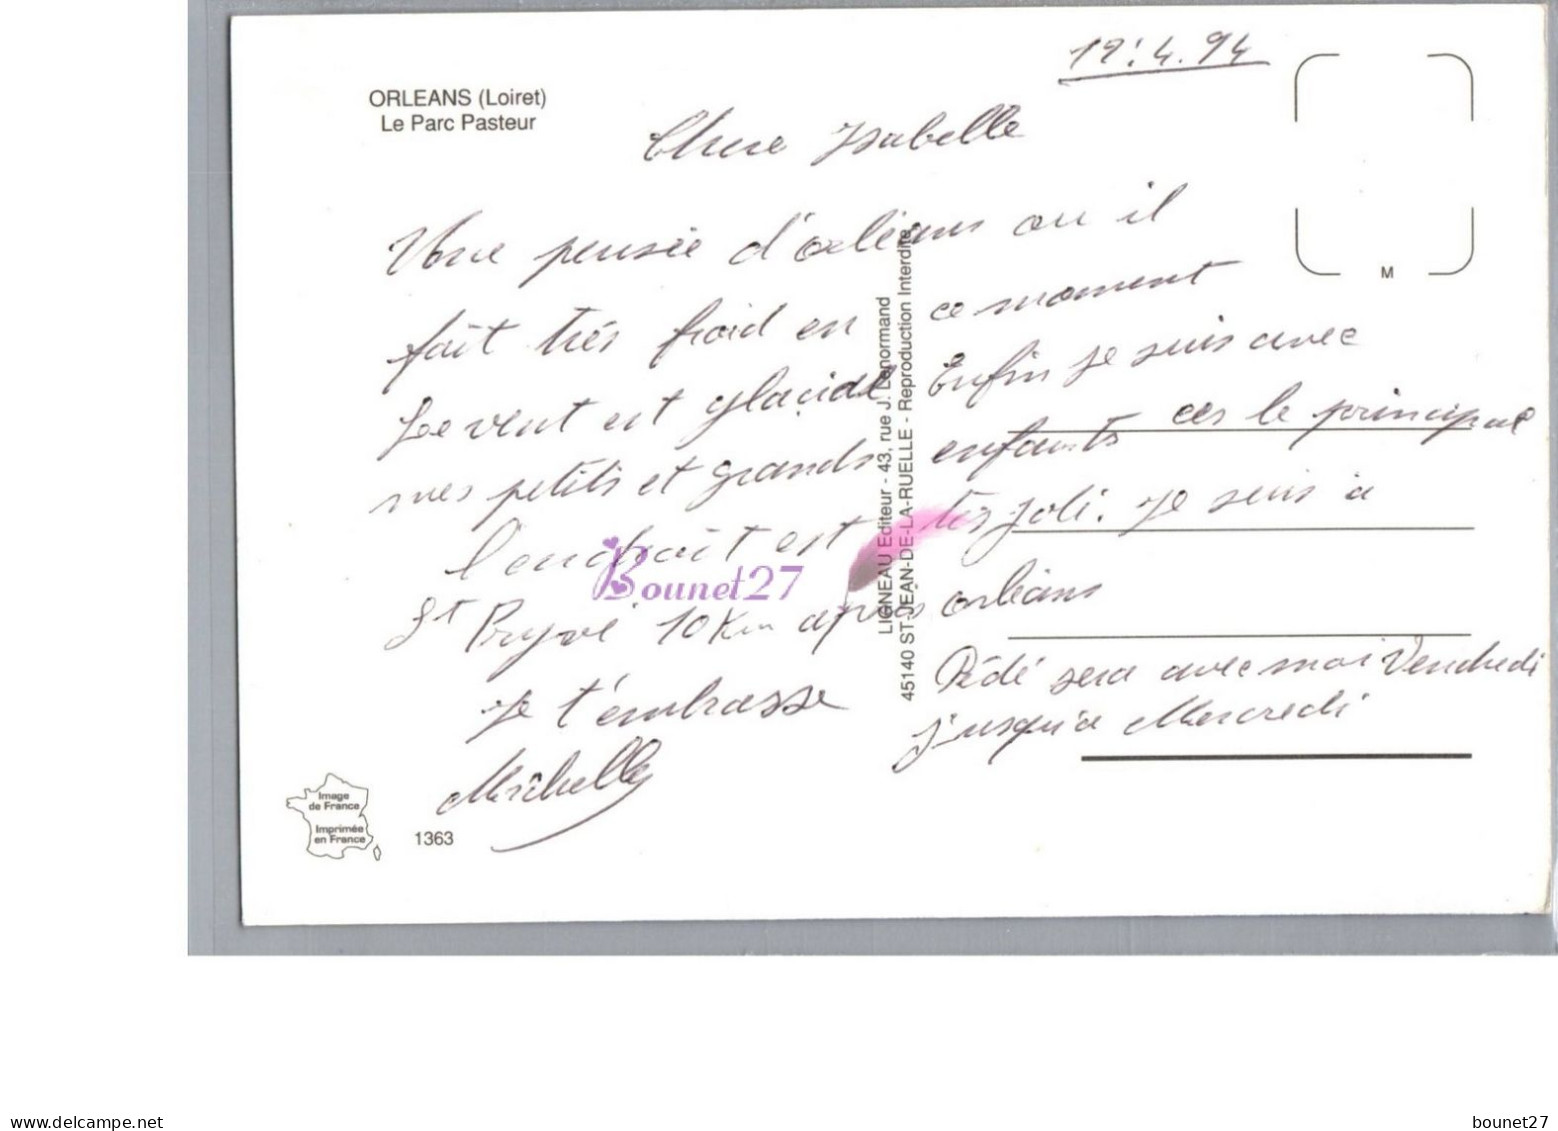 12.4.94
ORLEANS (Loiret)
Le Parc Pasteur
Chere Isabelle
Une pensée d'orléans ou il
fait très froid en ce moment
Le vent est glacial Enfin je suis avec
mes petits et grands enfants ces le principal
l'endroit est très joli. Je suis a
St Pryvé 10 Km après orléans
Dédé sera avec moi Vendredi
jusqu'a Mercredi
Je t'embrasse
Michelle
M
LIGNEAU Editeur - 43, rue J. Lenormand
45140 ST-JEAN-DE-LA-RUELLE - Reproduction Interdite
Bounet27
Image
de France
Imprimée
en France
1363
www.delcampe.net
bounet27